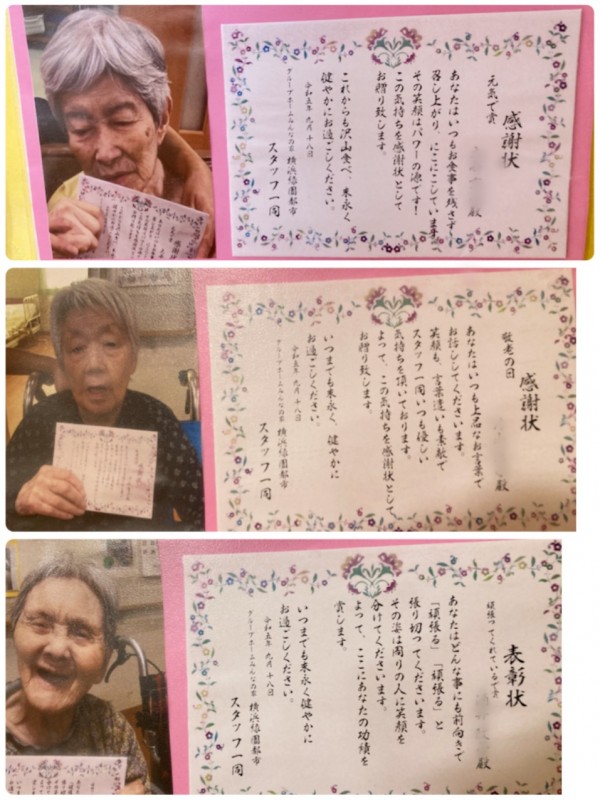 感謝状
元気で賞
殿
あなたはいつもお食事を残さず
召し上がり、にこにこしています
その笑顔はパワーの源です!
この気持ちを感謝状として
お贈り致します。
これからも沢山食べ、末永く
健やかにお過ごしください。
令和五年 九月十八日
グループホームみんなの家 横浜緑園都市
スタッフ一同
感謝状
敬老の日
殿
あなたはいつも上品なお言葉で
お話ししてくださいます。
笑顔も、言葉遣いも素敵で
スタッフ一同いつも優しい
気持ちを頂いております。
よって、この気持ちを感謝状として、
お贈り致します。
いつまでも末永く、健やかに
お過ごしください。
令和五年 九月十八日
グループホームみんなの家 横浜緑園都市
スタッフ一同
表彰状
頑張ってくれているで賞
殿
あなたはどんな事にも前向きで
「頑張る」「頑張る」と
張り切ってくださいます。
その姿は周りの人に笑顔を
分けてくださいます。
よって、ここにあなたの功績を
賞します。
いつまでも末永く健やかに
お過ごしください。
令和五年 九月十八日
グループホームみんなの家 横浜緑園都市
スタッフ一同